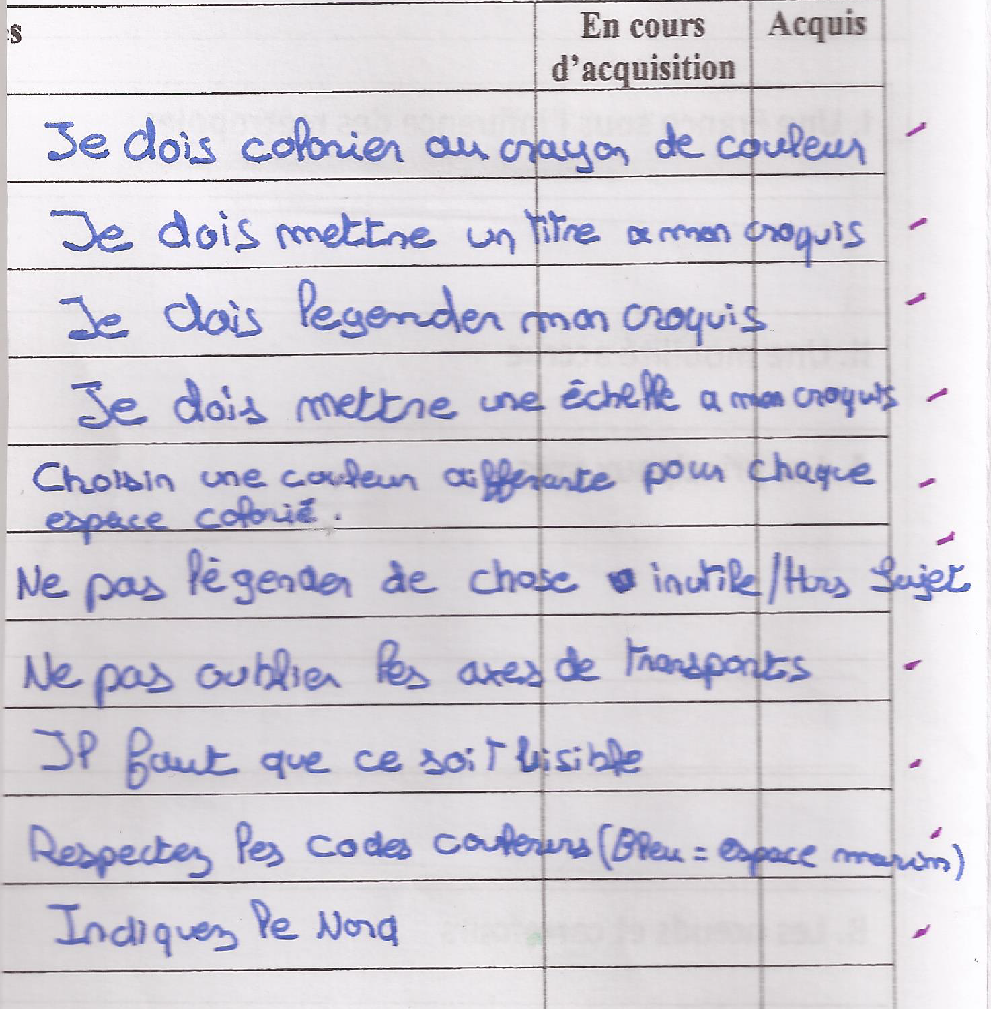 s
En cours d'acquisition
Acquis
Je dois colorier au crayon de couleur
Je dois mettre un titre a mon croquis
Je dois legender mon croquis
Je dois mettre une échelle a mon croquis
Choisir une couleur differante pour chaque
espace colorié.
Ne pas légender de chose inutile/Hors Sujet
Ne pas oublier les axes de transports
Il faut que ce soit lisible
Respectez les codes couleurs (Bleu = espace marin)
Indiquez le Nord